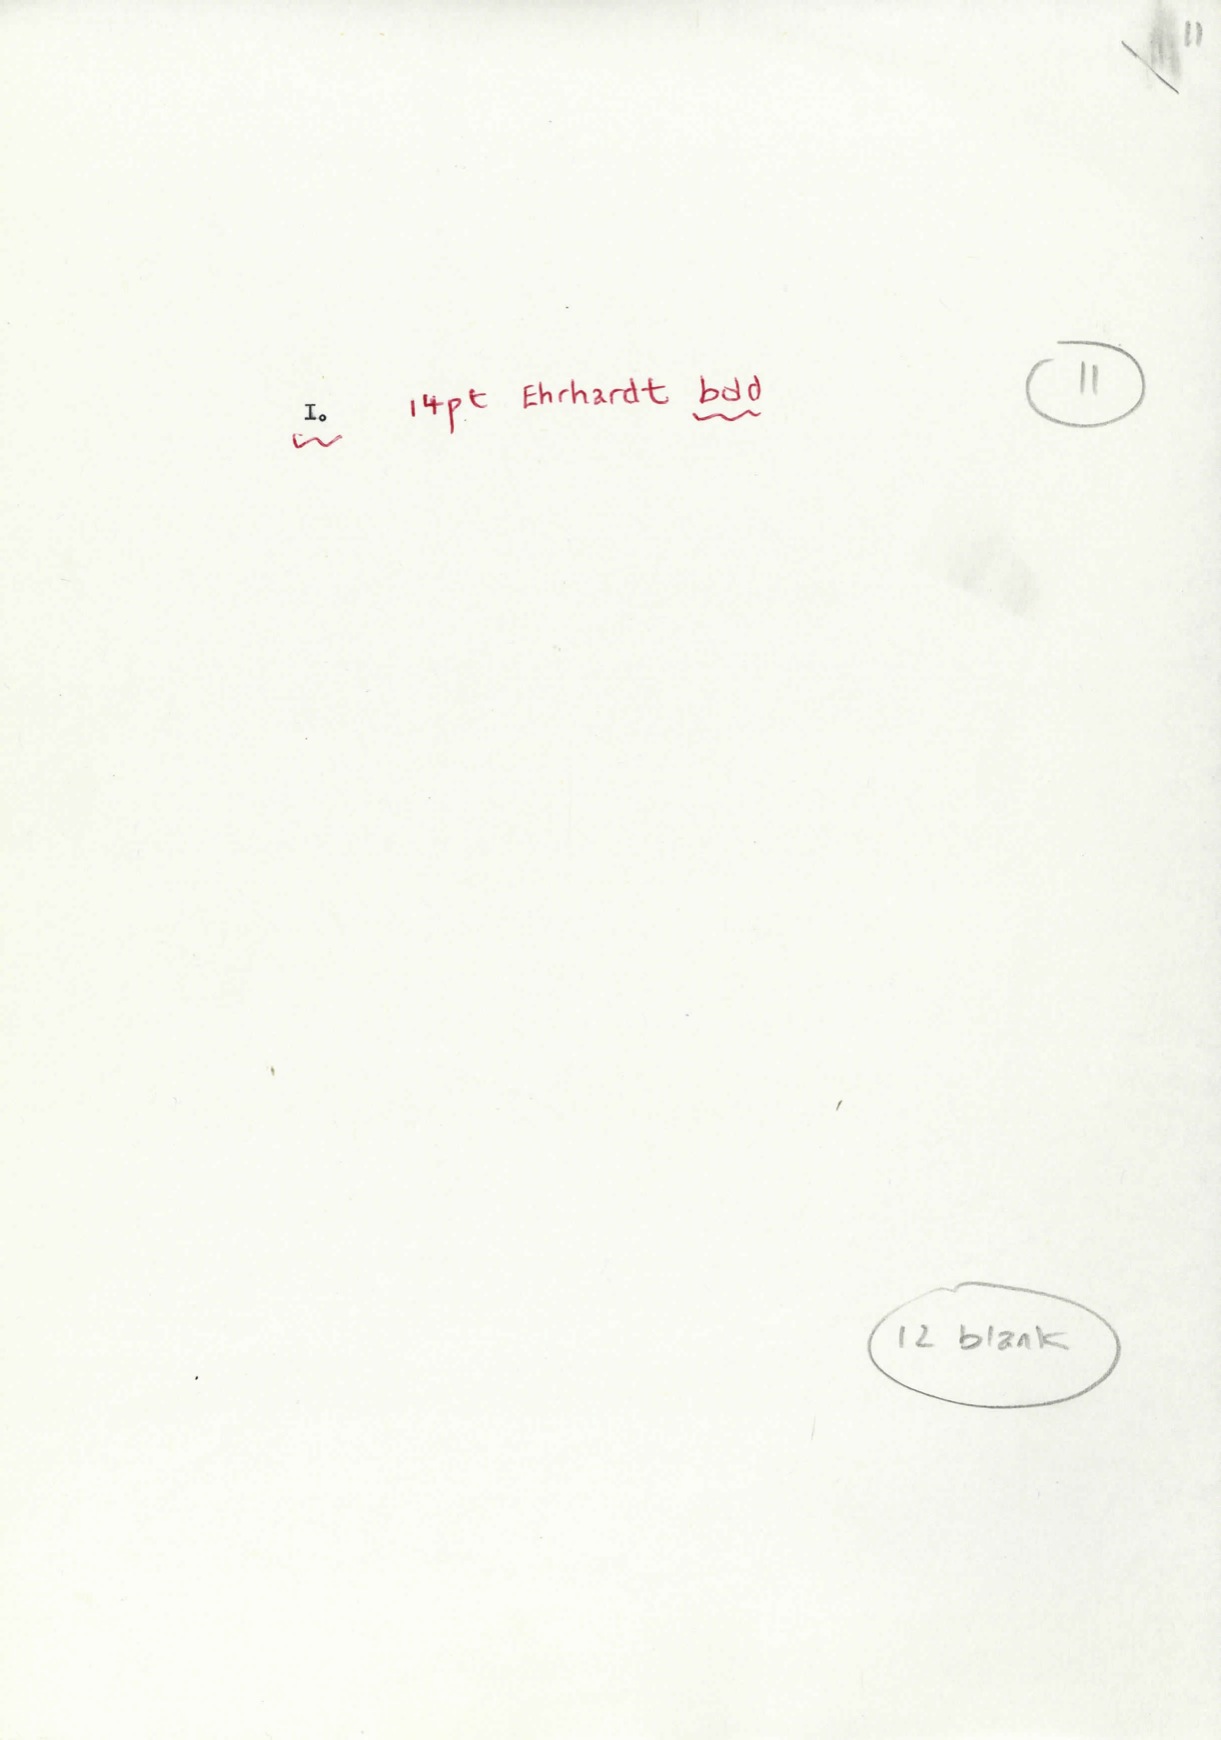 11
I. 14pt Ehrhardt bdd
11
12 blank